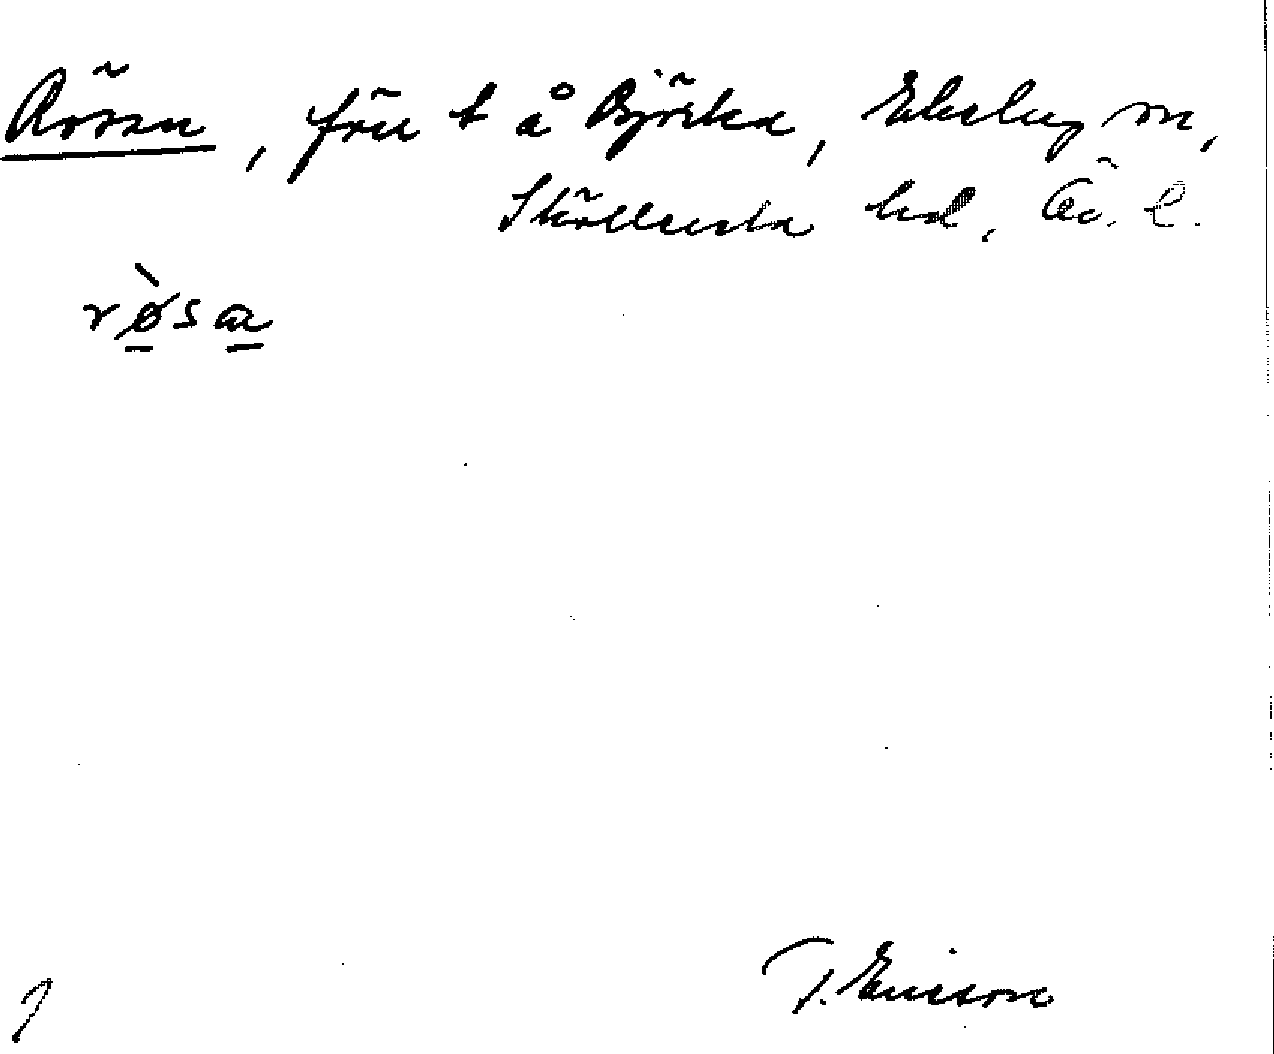 Rösan,förr t å Björka, Ekeby sn,
Sköllersta hd, Ör. l.
rø̀sa
T. Ericson